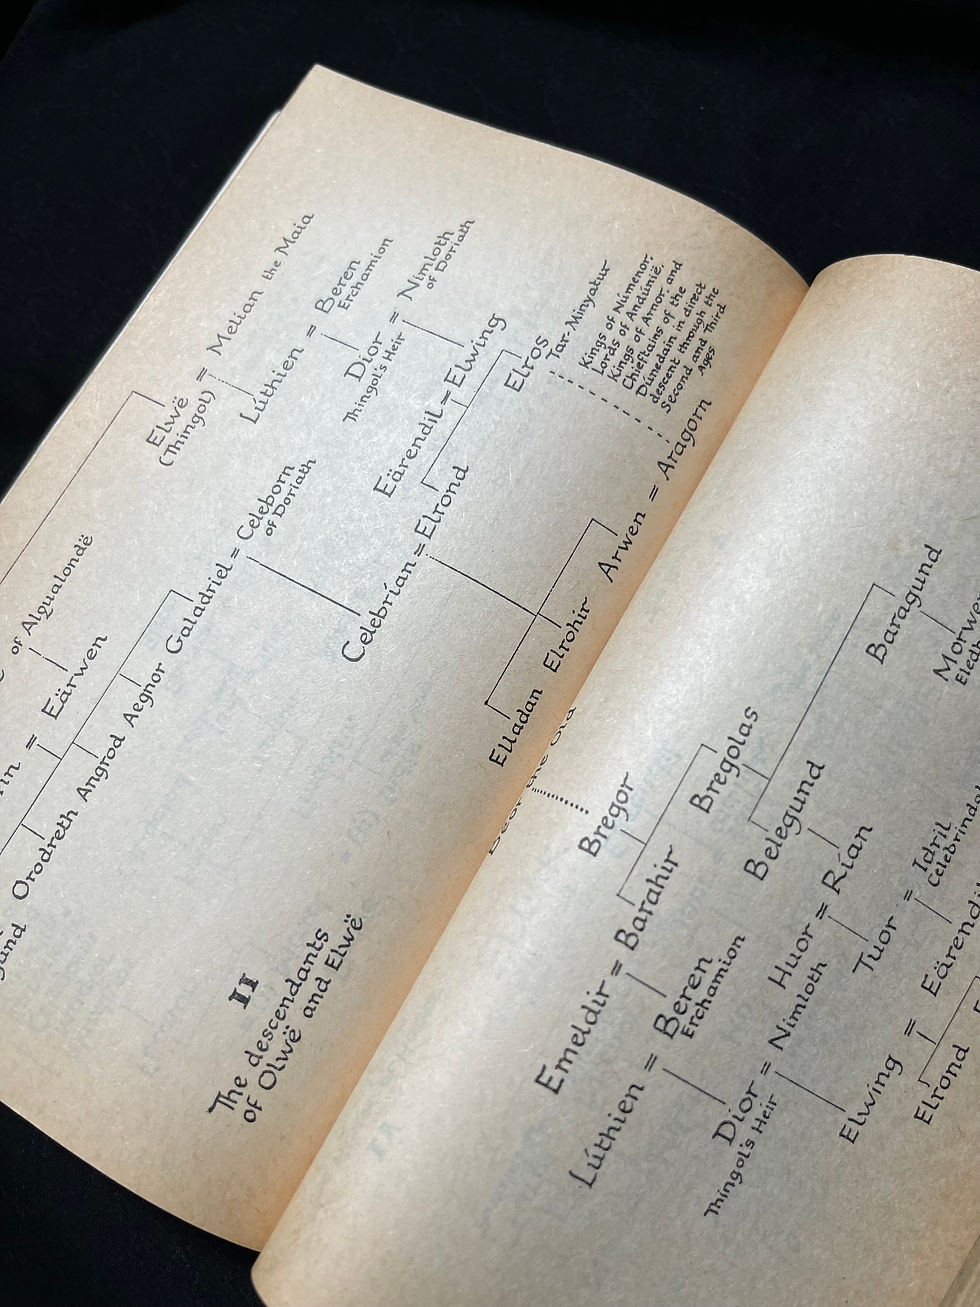 Elwë = Melian the Maia
(Thingol)
of Alqualondë
Lúthien = Beren
Erchamion
Dior = Nimloth
Thingol's Heir
of Doriath
Eärwen
Orodreth Angrod Aegnor Galadriel = Celeborn
of Doriath
Eärendil = Elwing
Celebrían = Elrond
Elros
Tar-Minyatur
Kings of Númenor,
Lords of Andúnië,
Kings of Arnor, and
Chieftains of the
Dúnedain in direct
descent through the
Second and Third
Ages
Elladan Elrohir Arwen = Aragorn
II
The descendants
of Olwë and Elwë
Bregor
Emeldir = Barahir
Bregolas
Lúthien = Beren
Erchamion
Belegund
Baragund
Dior = Nimloth
Thingol's Heir
Huor = Rían
Tuor = Idril
Elwing = Eärendil
Elrond